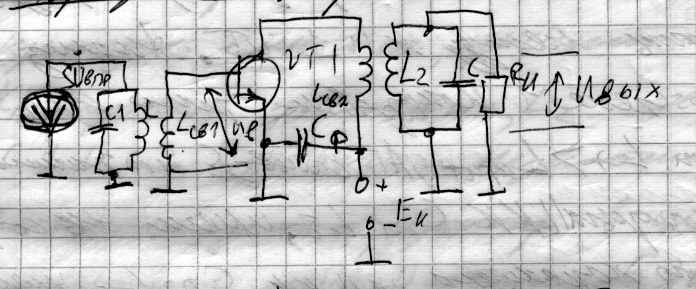 VT1
L2
C
Rн
Uвых
SUвпр
C1
L
Lсв1
Uв
Lсв2
Cф
+
- Eк